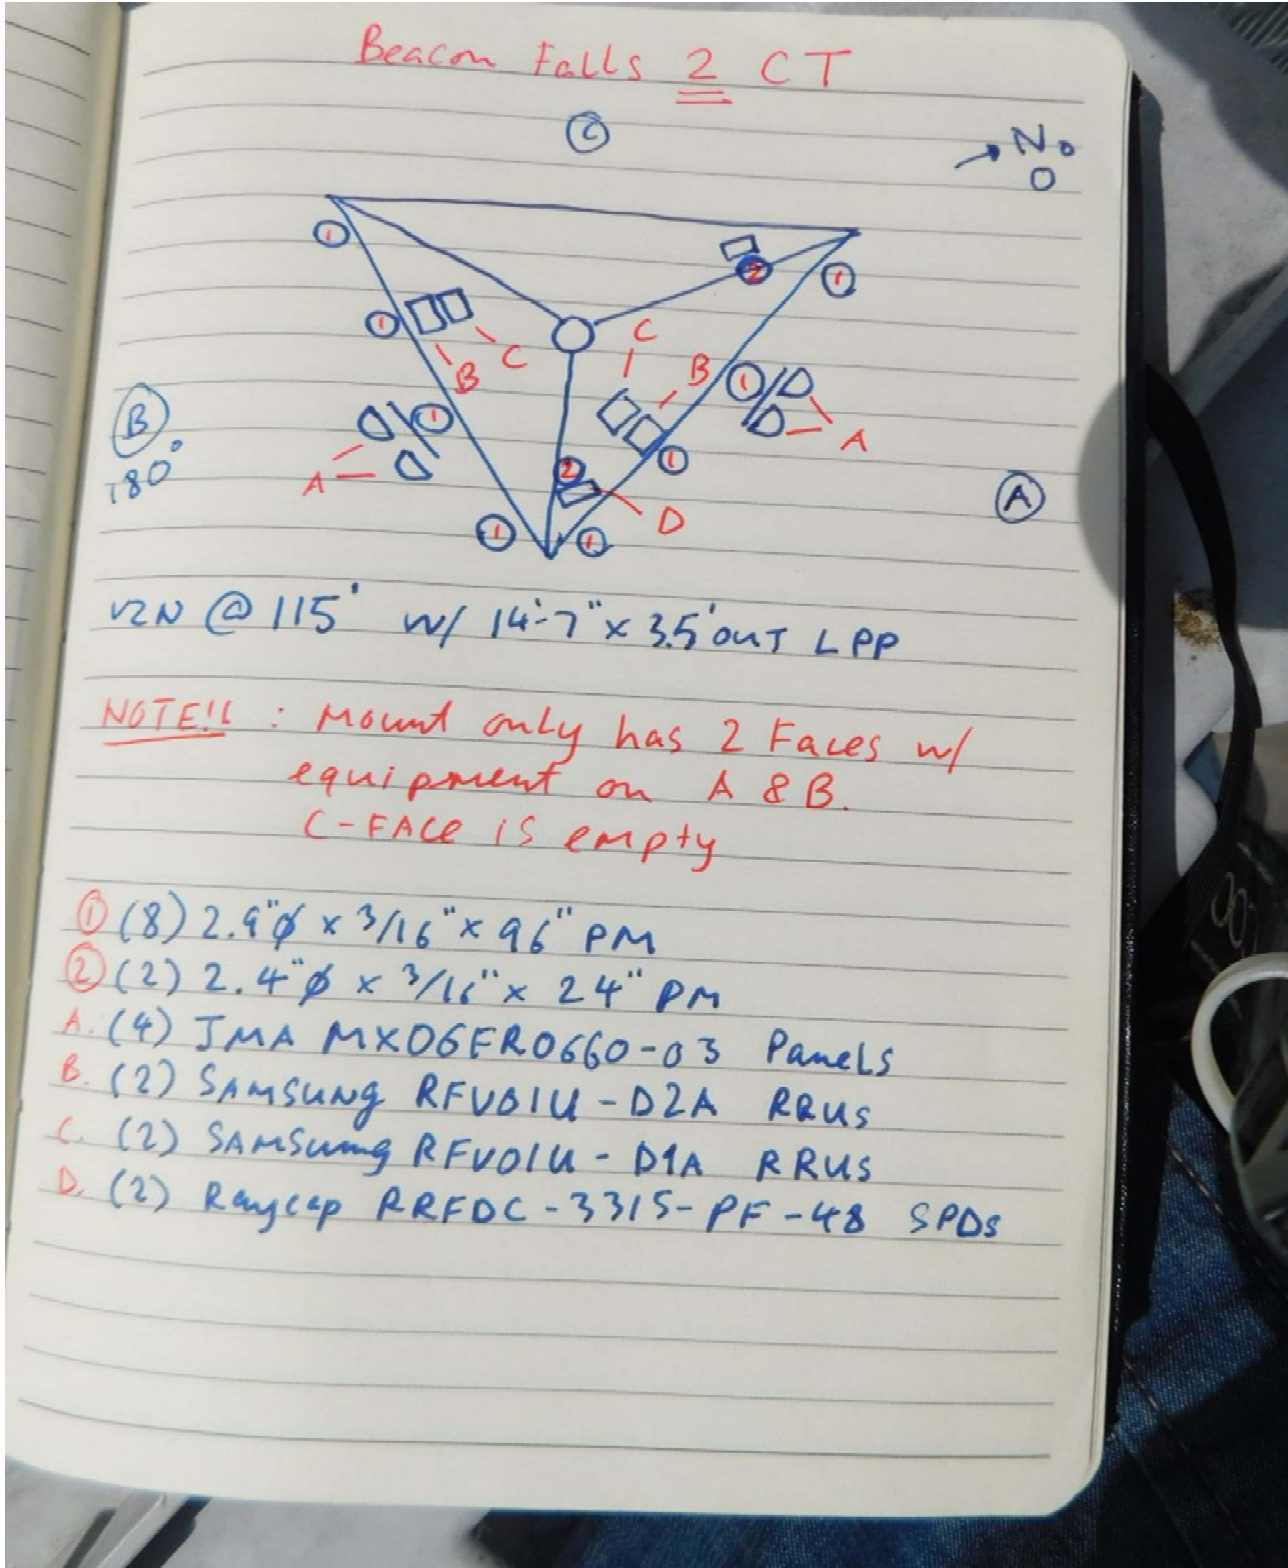 Beacon Falls 2 CT
C
N
0°
1
2
1
1
C
C
B
B
1
B
180°
1
A
A
1
2
A
D
1
1
VZN @ 115' w/ 14'-7" x 3.5' OUT LPP
NOTE!! : Mount only has 2 Faces w/
equipment on A & B.
C-FACE is empty
① (8) 2.9"φ x 3/16" x 96" PM
② (2) 2.4"φ x 3/16" x 24" PM
A. (4) JMA MX06FRO660-03 Panels
B. (2) SAMSUNG RFV01U-D2A RRUs
C. (2) SAMSung RFV01U-D1A RRUs
D. (2) Raycap RRFDC-3315-PF-48 SPDs